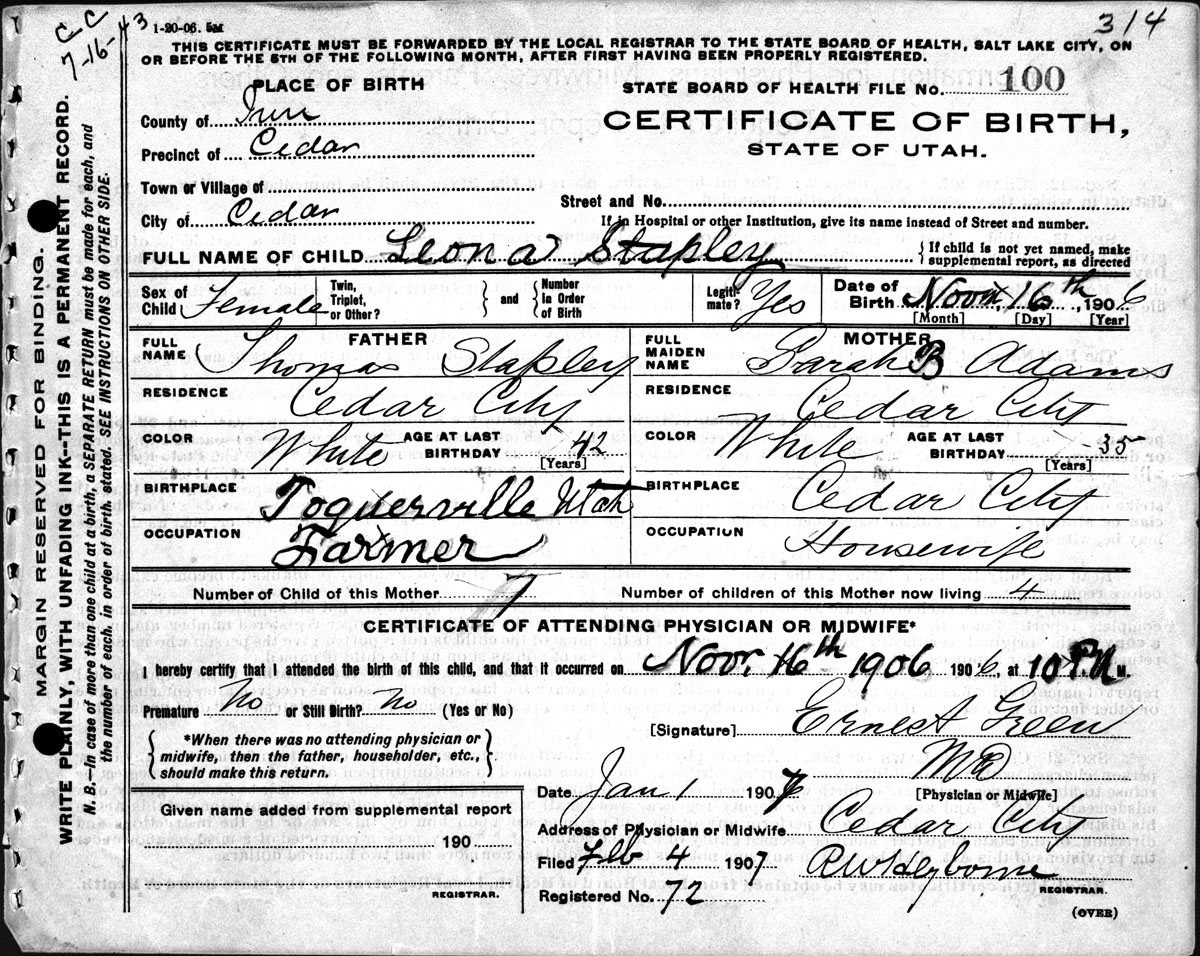 C C
7-16-43
1-20-06. 5M
314
THIS CERTIFICATE MUST BE FORWARDED BY THE LOCAL REGISTRAR TO THE STATE BOARD OF HEALTH, SALT LAKE CITY, ON
OR BEFORE THE 5TH OF THE FOLLOWING MONTH, AFTER FIRST HAVING BEEN PROPERLY REGISTERED.
PLACE OF BIRTH
STATE BOARD OF HEALTH FILE No. 100
County of Iron
CERTIFICATE OF BIRTH,
Precinct of Cedar
STATE OF UTAH.
Town or Village of
Street and No.
City of Cedar
If in Hospital or other Institution, give its name instead of Street and number.
FULL NAME OF CHILD Leona Stapley { If child is not yet named, make
supplemental report, as directed
Sex of Child Female Twin, Triplet, or Other? } and { Number In Order of Birth Legiti-mate? Yes Date of Birth Nov 16th, 1906
[Month] [Day] [Year]
FATHER
MOTHER
FULL NAME Thomas Stapley
FULL MAIDEN NAME Sarah B Adams
RESIDENCE Cedar City
RESIDENCE Cedar City
COLOR White AGE AT LAST BIRTHDAY 42 [Years]
COLOR White AGE AT LAST BIRTHDAY 35 [Years]
BIRTHPLACE Toquerville Utah
BIRTHPLACE Cedar City
OCCUPATION Farmer
OCCUPATION Housewife
Number of Child of this Mother 7 Number of children of this Mother now living 4
CERTIFICATE OF ATTENDING PHYSICIAN OR MIDWIFE*
I hereby certify that I attended the birth of this child, and that it occurred on Nov. 16th 1906 1906, at 10 P.M.
Premature No or Still Birth? No (Yes or No)
[Signature] Ernest Green
MD
[Physician or Midwife]
{ *When there was no attending physician or
midwife, then the father, householder, etc.,
should make this return. }
Date Jan 1 1907
Given name added from supplemental report
190
REGISTRAR.
Address of Physician or Midwife Cedar City
Filed Feb 4 1907
REGISTRAR.
Registered No. 72
(OVER)
MARGIN RESERVED FOR BINDING.
WRITE PLAINLY, WITH UNFADING INK—THIS IS A PERMANENT RECORD.
N. B.—In case of more than one child at a birth, a SEPARATE RETURN must be made for each, and
the number of each, in order of birth, stated. SEE INSTRUCTIONS ON OTHER SIDE.